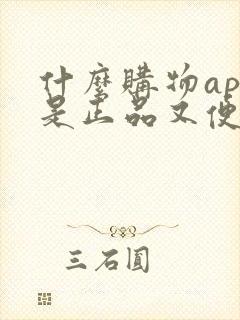 什麼購物ap
是正品又便
三石圓